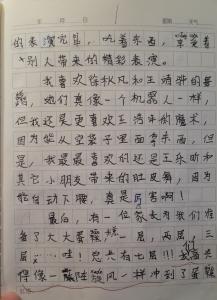 年 月 日 星期 天气
的表演完毕，吃着东西，享受着
别人带来的精彩表演。
我喜欢徐秋凡和王清
她们真像一个机器人一样，
但我还是更喜欢王 的魔术，
因为能从空袋子里面拿东西，但
是，我最最喜欢的还是王乐昕和
其它小朋友带来的肚皮舞，因为
能自动下腰，真是厉害啊！
最后，有一位家长为我们准
备了大大蛋糕，一层，两层，三
层， 哇！总共有七层！！！我
俩像一 阵旋风一样冲到了蛋糕